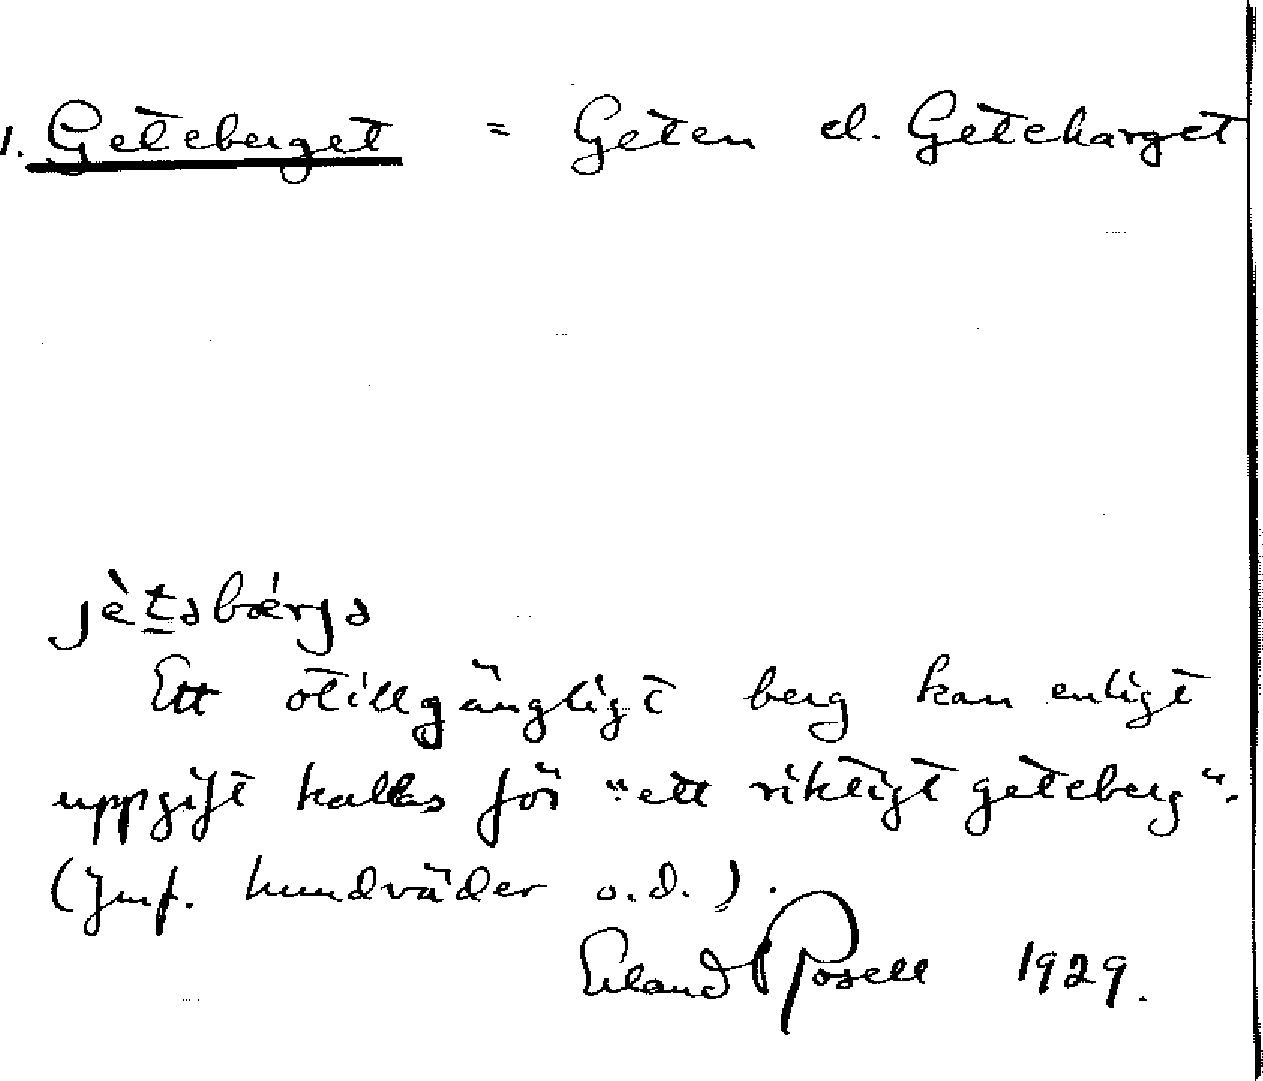 1. Geteberget = Geten el. Geteharget
jètəbærjə
Ett otillgängligt berg kan enligt
uppgift kallas för "ett riktigt geteberg".
(Jmf. hundväder o.d.).
Erland Rosell 1929.